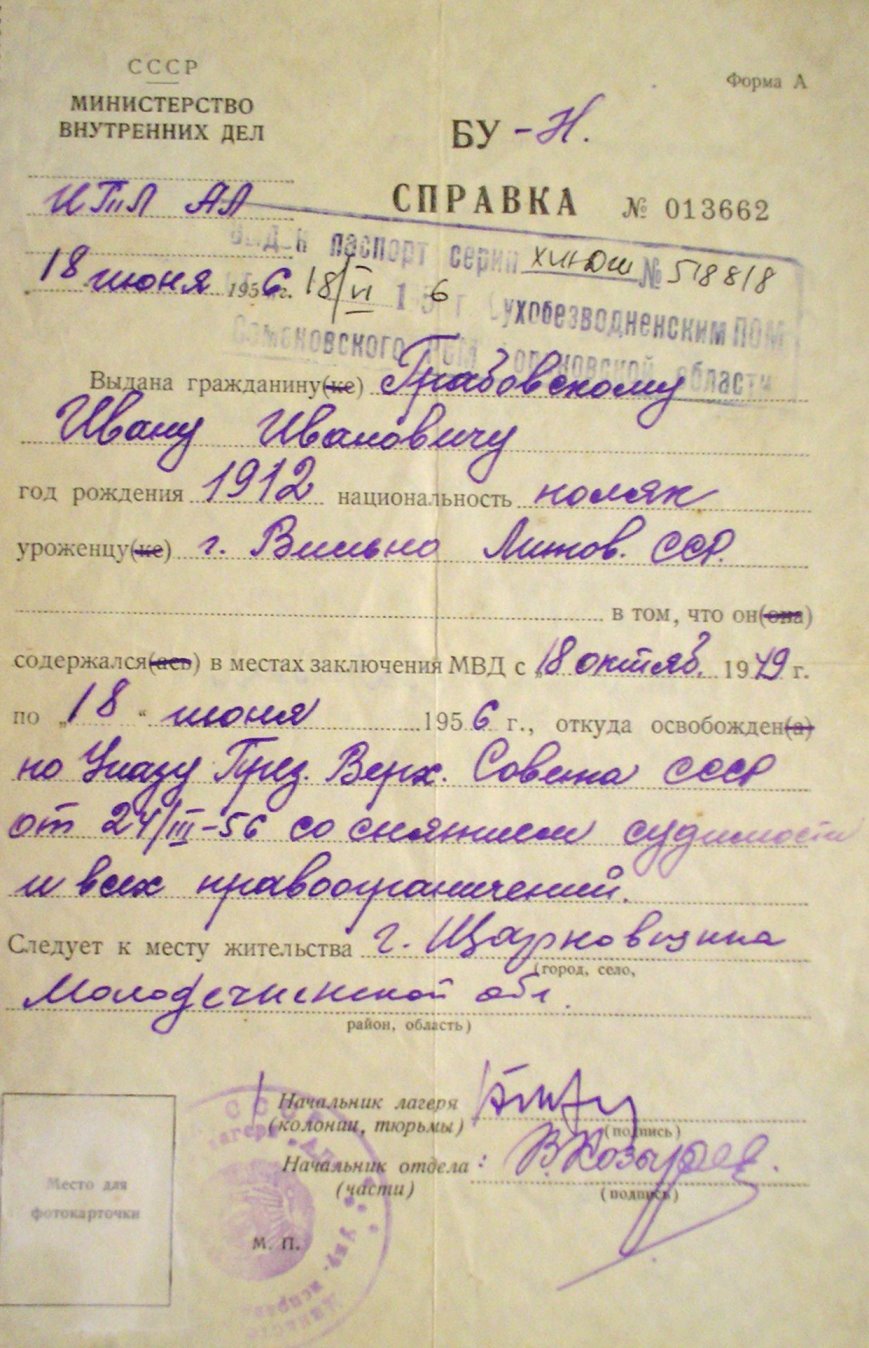 СССР
Форма А
МИНИСТЕРСТВО
ВНУТРЕННИХ ДЕЛ
БУ -Н.
ИТЛ АЛ
СПРАВКА № 013662
паспорт серии № 518818
18 июня 1956 г. 18/VI 6 Сухобезводненским ПОМ
области
Выдана гражданину(ке) Грабовскому
Ивану Ивановичу
год рождения 1912 национальность поляк
уроженцу(ке) г. Вильно Литов. ССР.
в том, что он(она)
содержался(ась) в местах заключения МВД с „18 октяб. 1949 г.
по „18 “ июня 1956 г., откуда освобожден(а)
по Указу През. Верх. Совета СССР
от 24/III-56 со снятием судимости
и всех правоограничений.
Следует к месту жительства г. Щарковщина
(город, село,
Молодечненской обл.
район, область)
Начальник лагеря
(колонии, тюрьмы)
(подпись)
Начальник отдела :
(части)
(подпись)
Место для
фотокарточки
М. П.